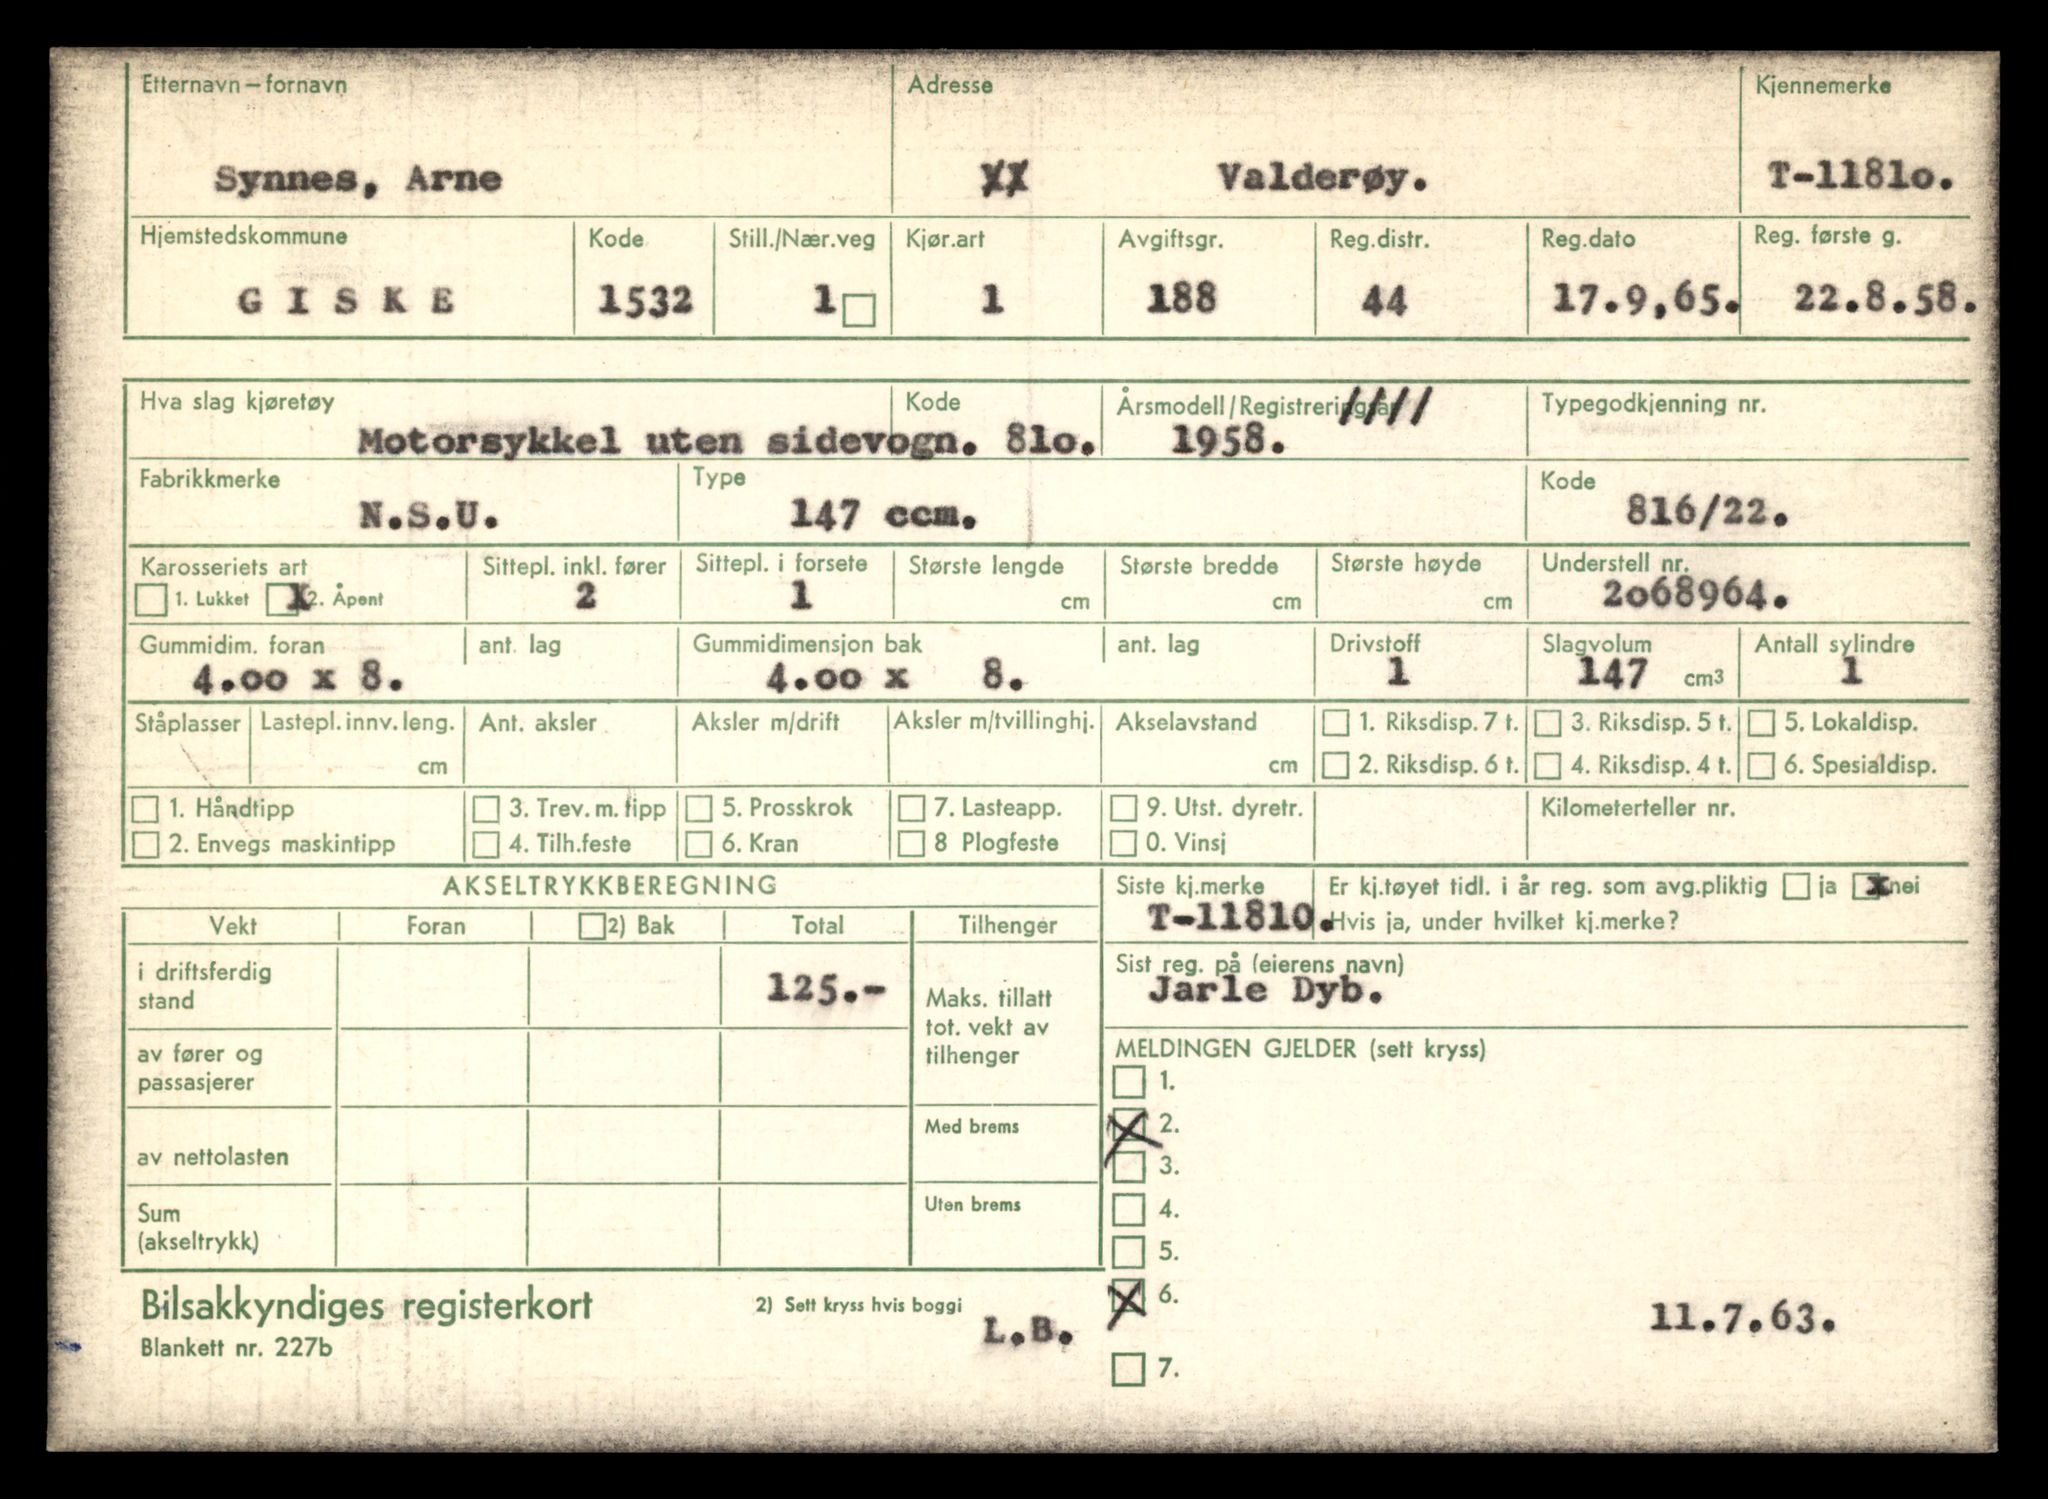 Etternavn – fornavn Adresse Kjennemerke
Synnes, Arne Valderøy. T-1181o.
Hjemstedskommune Kode Still./Nær.veg Kjør.art Avgiftsgr. Reg.distr. Reg.dato Reg. første g.
G I S K E 1532 1 1 188 44 17.9,65. 22.8.58.
Hva slag kjøretøy Kode Årsmodell/Registreringsår Typegodkjenning nr.
Motorsykkel uten sidevogn. 81o. 1958.
Fabrikkmerke Type Kode
N.S.U. 147 ccm. 816/22.
Karosseriets art Sittepl. inkl. fører Sittepl. i forsete Største lengde Største bredde Største høyde Understell nr.
1. Lukket X 2. Åpent 2 1 cm cm cm 2o68964.
Gummidim. foran ant. lag Gummidimensjon bak ant. lag Drivstoff Slagvolum Antall sylindre
4.oo x 8. 4.oo x 8. 1 147 cm3 1
Ståplasser Lastepl. innv. leng. Ant. aksler Aksler m/drift Aksler m/tvillinghj. Akselavstand 1. Riksdisp. 7 t. 3. Riksdisp. 5 t. 5. Lokaldisp.
cm cm 2. Riksdisp. 6 t. 4. Riksdisp. 4 t. 6. Spesialdisp.
1. Håndtipp 3. Trev. m. tipp 5. Prosskrok 7. Lasteapp. 9. Utst. dyretr. Kilometerteller nr.
2. Envegs maskintipp 4. Tilh.feste 6. Kran 8 Plogfeste 0. Vinsj
AKSELTRYKKBEREGNING Siste kj.merke Er kj.tøyet tidl. i år reg. som avg.pliktig ja x nei
Vekt Foran 2) Bak Total Tilhenger T-11810. Hvis ja, under hvilket kj.merke?
i driftsferdig stand 125.- Sist reg. på (eierens navn)
Jarle Dyb.
Maks. tillatt
tot. vekt av
tilhenger
av fører og
passasjerer
MELDINGEN GJELDER (sett kryss)
1.
Med brems X 2.
av nettolasten 3.
Uten brems 4.
Sum
(akseltrykk)
5.
Bilsakkyndiges registerkort 2) Sett kryss hvis boggi X 6.
L.B. 11.7.63.
Blankett nr. 227b
7.